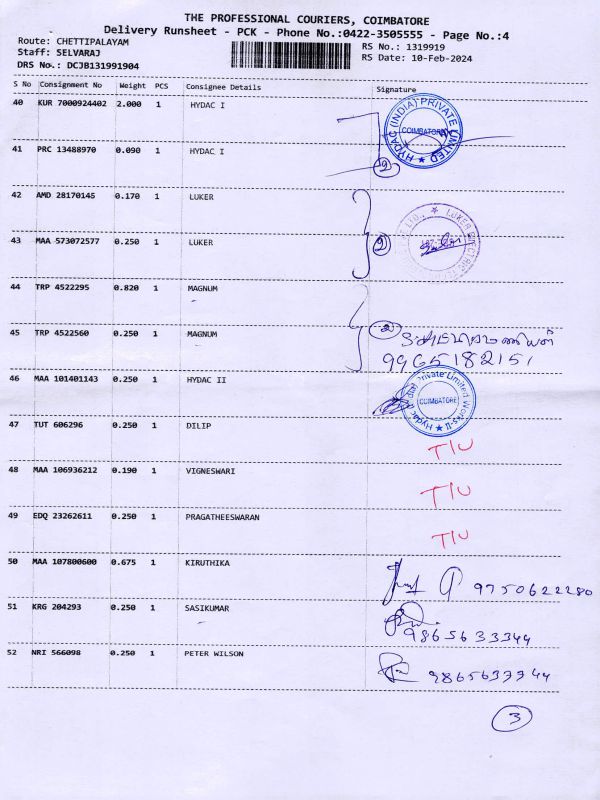 THE PROFESSIONAL COURIERS, COIMBATORE
Delivery Runsheet - PCK - Phone No.:0422-3505555 - Page No.:4
Route: CHETTIPALAYAM
Staff: SELVARAJ
DRS No.: DCJB131991904
RS No.: 1319919
RS Date: 10-Feb-2024
S No Consignment No Weight PCS Consignee Details Signature
40 KUR 7000924402 2.000 1 HYDAC I
HYDAC (INDIA) PRIVATE LIMITED ★
COIMBATORE
41 PRC 13488970 0.090 1 HYDAC I
2
42 AMD 28170145 0.170 1 LUKER
43 MAA 573072577 0.250 1 LUKER
2
★ LUKER
44 TRP 4522295 0.820 1 MAGNUM
2
45 TRP 4522560 0.250 1 MAGNUM
9965182151
46 MAA 101401143 0.250 1 HYDAC II
Hydac (India) Private Limited Works-II ★
COIMBATORE
47 TUT 606296 0.250 1 DILIP
T/U
48 MAA 106936212 0.190 1 VIGNESWARI
T/U
49 EDQ 23262611 0.250 1 PRAGATHEESWARAN
T/U
50 MAA 107800600 0.675 1 KIRUTHIKA
9750622280
51 KRG 204293 0.250 1 SASIKUMAR
9865633344
52 NRI 566098 0.250 1 PETER WILSON
9865633344
3